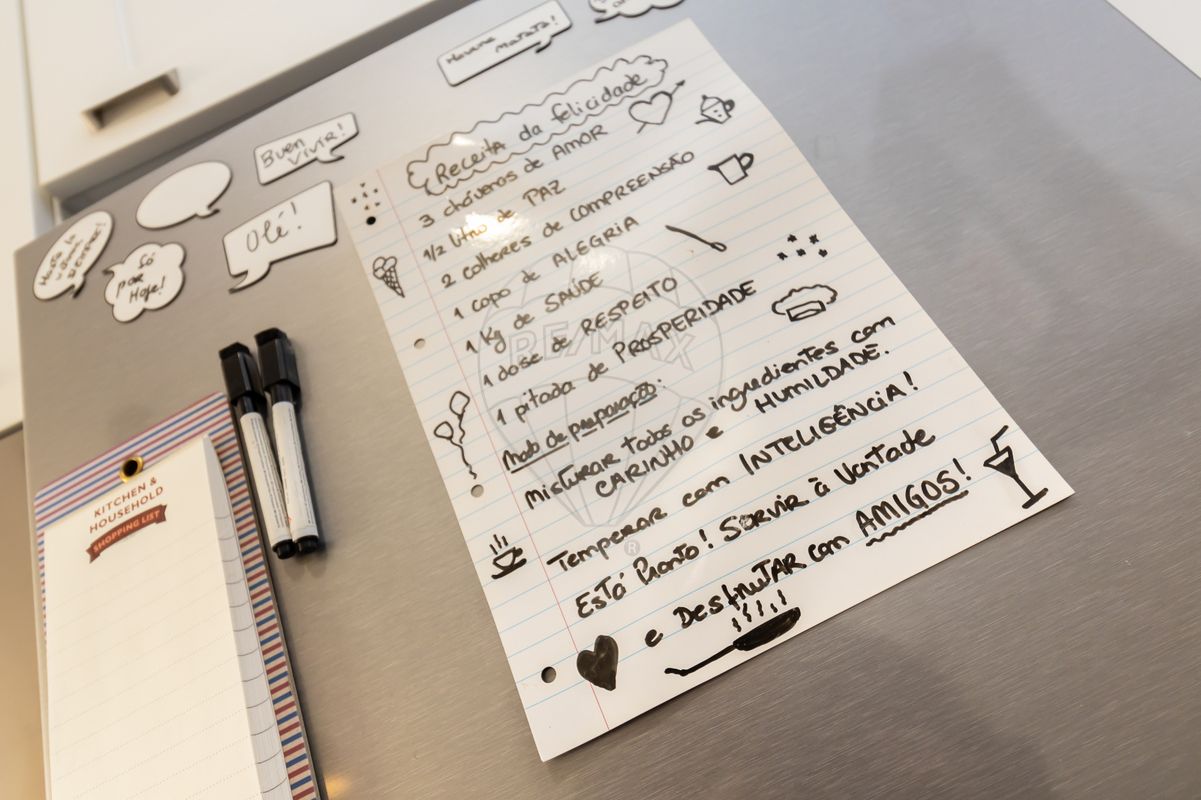 Hakuna Matata!
Buen
Vivir!
Olé!
Hasta la
Só
por
Hoje!
Receita da felicidade
3 cháveros de AMOR
1/2 litro de PAZ
2 colheres de COMPREENSÃO
1 copo de ALEGRIA
1 Kg de SAÚDE
1 dose de RESPEITO
1 pitada de PROSPERIDADE
Modo de preparação:
Misturar todos os ingredientes com
CARINHO e HUMILDADE.
Temperar com INTELIGÊNCIA!
Está Pronto! Servir à Vontade
e Desfrutar com AMIGOS!
RE/MAX
®
KITCHEN &
HOUSEHOLD
SHOPPING LIST